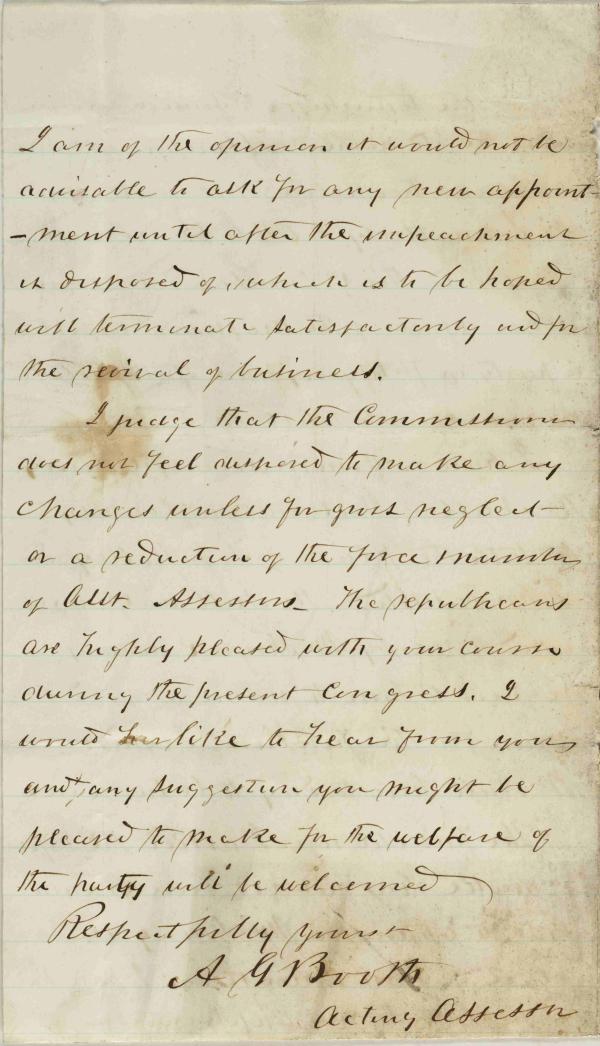 I am of the opinion it would not be
advisable to ask for any new appoint-
-ment until after the impeachment
is disposed of, which is to be hoped
will terminate satisfactorily and for
the revival of business.
I judge that the Commissioner
does not feel disposed to make any
changes unless for gross neglect
or a reduction of the force number
of Asst. Assessors. The republicans
are highly pleased with your course
during the present Congress. I
would like to hear from you
and any suggestion you might be
pleased to make for the welfare of
the party will be welcomed
Respectfully yours
A G Booth
Acting Assessor